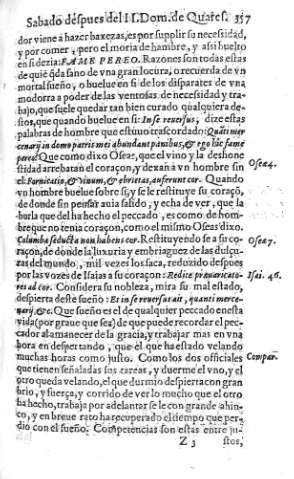 Sabado despues del II. Dom. de Quares. 357
dor viene a hazer baxezas, es por suplir su necessidad,
y por comer, pero el moria de hambre, y assi buelto
en si dezia: FAME PEREO. Razones son todas estas
de quié q̃da sano de vna gran locura, o recuerda de vn
mortal sueño, o buelue en si de los disparates de vna
modorra a poder de las ventosas de necessidad y tra-
bajo, que suele quedar tan bien curado qualquiera de-
stos, que quando buelue en si: In se reuersus, dize estas
palabras de hombre que estuuo trascordado: Quãti mer-
cenarij in domo patris mei abundant panibus, & ego hîc fame
pereo? Que como dixo Oseas, que el vino y la deshone
stidad arrebatan el coraçon, y dexan a vn hombre sin
el: Fornicatio, & vinum, & ebrietas, auferunt cor. Quando
vn hombre buelue sobre si, y se le restituye su coraçõ,
de donde sin pensar auia salido, y echa de ver, que la
burla que del ha hecho el peccado, es como de hom-
bre que no tenia coraçon, como el mismo Oseas dixo.
Columba seducta non habens cor. Restituyendo se a su co-
raçon, de donde la luxuria y embriaguez de las dulçu-
ras del mundo, mil vezes los saca, reduzido despues
por las vozes de Isaias a su coraçon: Redite præuaricato-
res ad cor. Considera su nobleza, mira su mal estado,
despierta deste sueño: Et in se reuersus ait, quanti merce-
narij, &c. Que sueño es el de qualquier peccado en esta
vida (por graue que sea) de que puede recordar el pec-
cador al amanecer de la gracia, y trabajar mas en vna
hora en despertando, que el que ha estado velando
muchas horas como justo. Como los dos officiales
que tienen señaladas sus tareas, y duerme el vno, y el
otro queda velando, el que durmio despierta con gran
brio, y fuerça, y corrido de ver lo mucho que el otro
ha hecho, trabaja por adelantar se le con grande ahin-
co, y en breue rato ha recuperado el tiempo que per-
dio con el sueño. Competencias son estas entre ju-
Z 3 stos,
Osee 4.
Osee 7.
Isai. 46.
Compar.